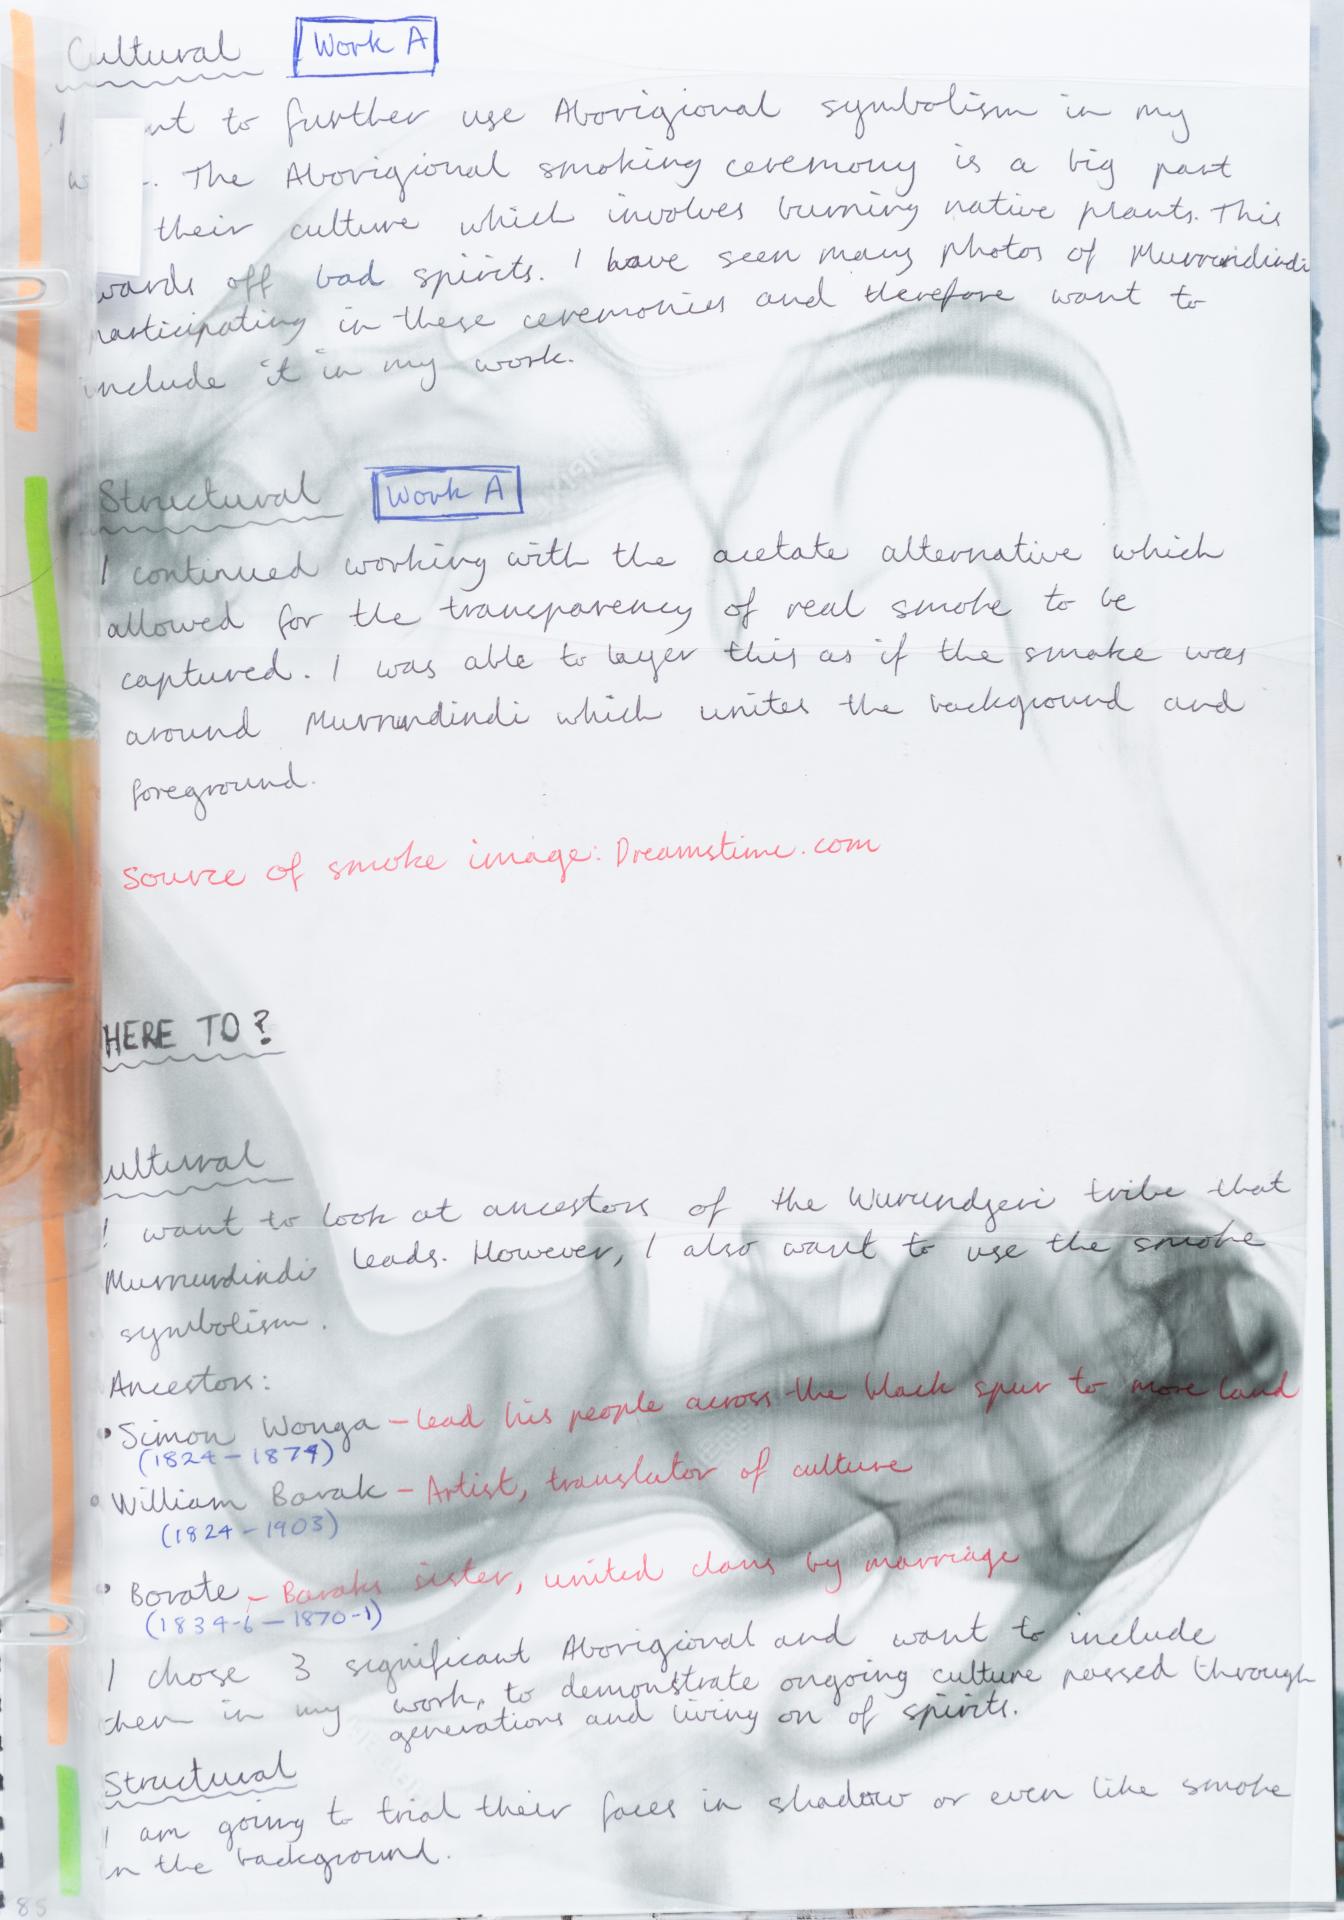 Cultural Work A
I nt to further use Aborigional symbolism in my
w . The Aborigional smoking ceremony is a big part
their culture which involves burning native plants. This
wards off bad spirits. I have seen many photos of Murrundindi
participating in these ceremonies and therefore want to
include it in my work.
Structural Work A
I continued working with the acetate alternative which
allowed for the transparency of real smoke to be
captured. I was able to layer this as if the smoke was
around Murrundindi which unites the background and
foreground.
Source of smoke image: Dreamstime.com
HERE TO?
ultural
I want to look at ancestors of the Wurundjeri tribe that
Murrundindi leads. However, I also want to use the smoke
symbolism.
Ancestors:
• Simon Wonga - Lead his people across the black spur to more land
(1824 - 1874)
• William Barak - Artist, translator of culture
(1824 - 1903)
• Borate - Baraks sister, united clans by marriage
(1834-6 - 1870-1)
I chose 3 significant Aborigional and want to include
them in my work, to demonstrate ongoing culture passed through
generations and living on of spirits.
Structural
I am going to trial their faces in shadow or even like smoke
in the background.
85